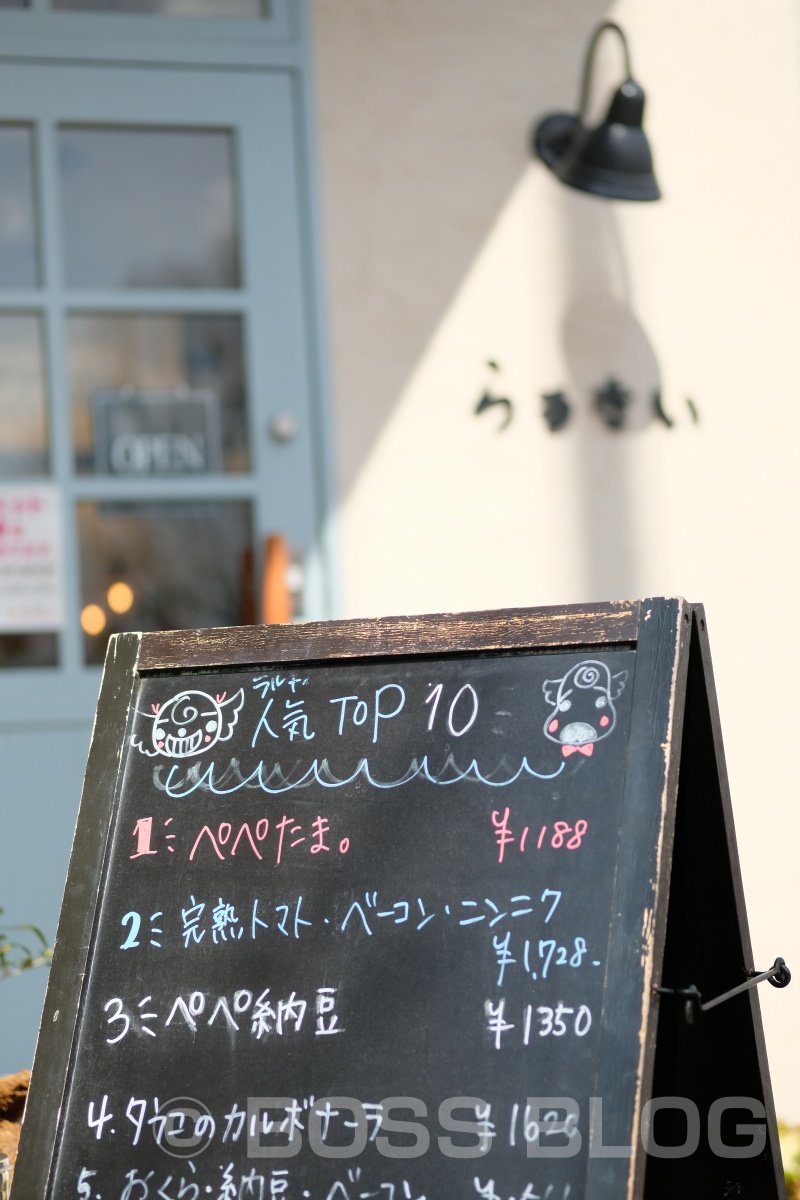 OPEN
らるきい
ラルキー
人気 TOP 10
1 ペペたま。 ¥1188
2 完熟トマト・ベーコン・ニンニク
¥1,728.
3 ペペ納豆 ¥1350
4. タラコのカルボナーラ ¥1620
5. おくら・納豆・ベーコン
© BOSS BLOG